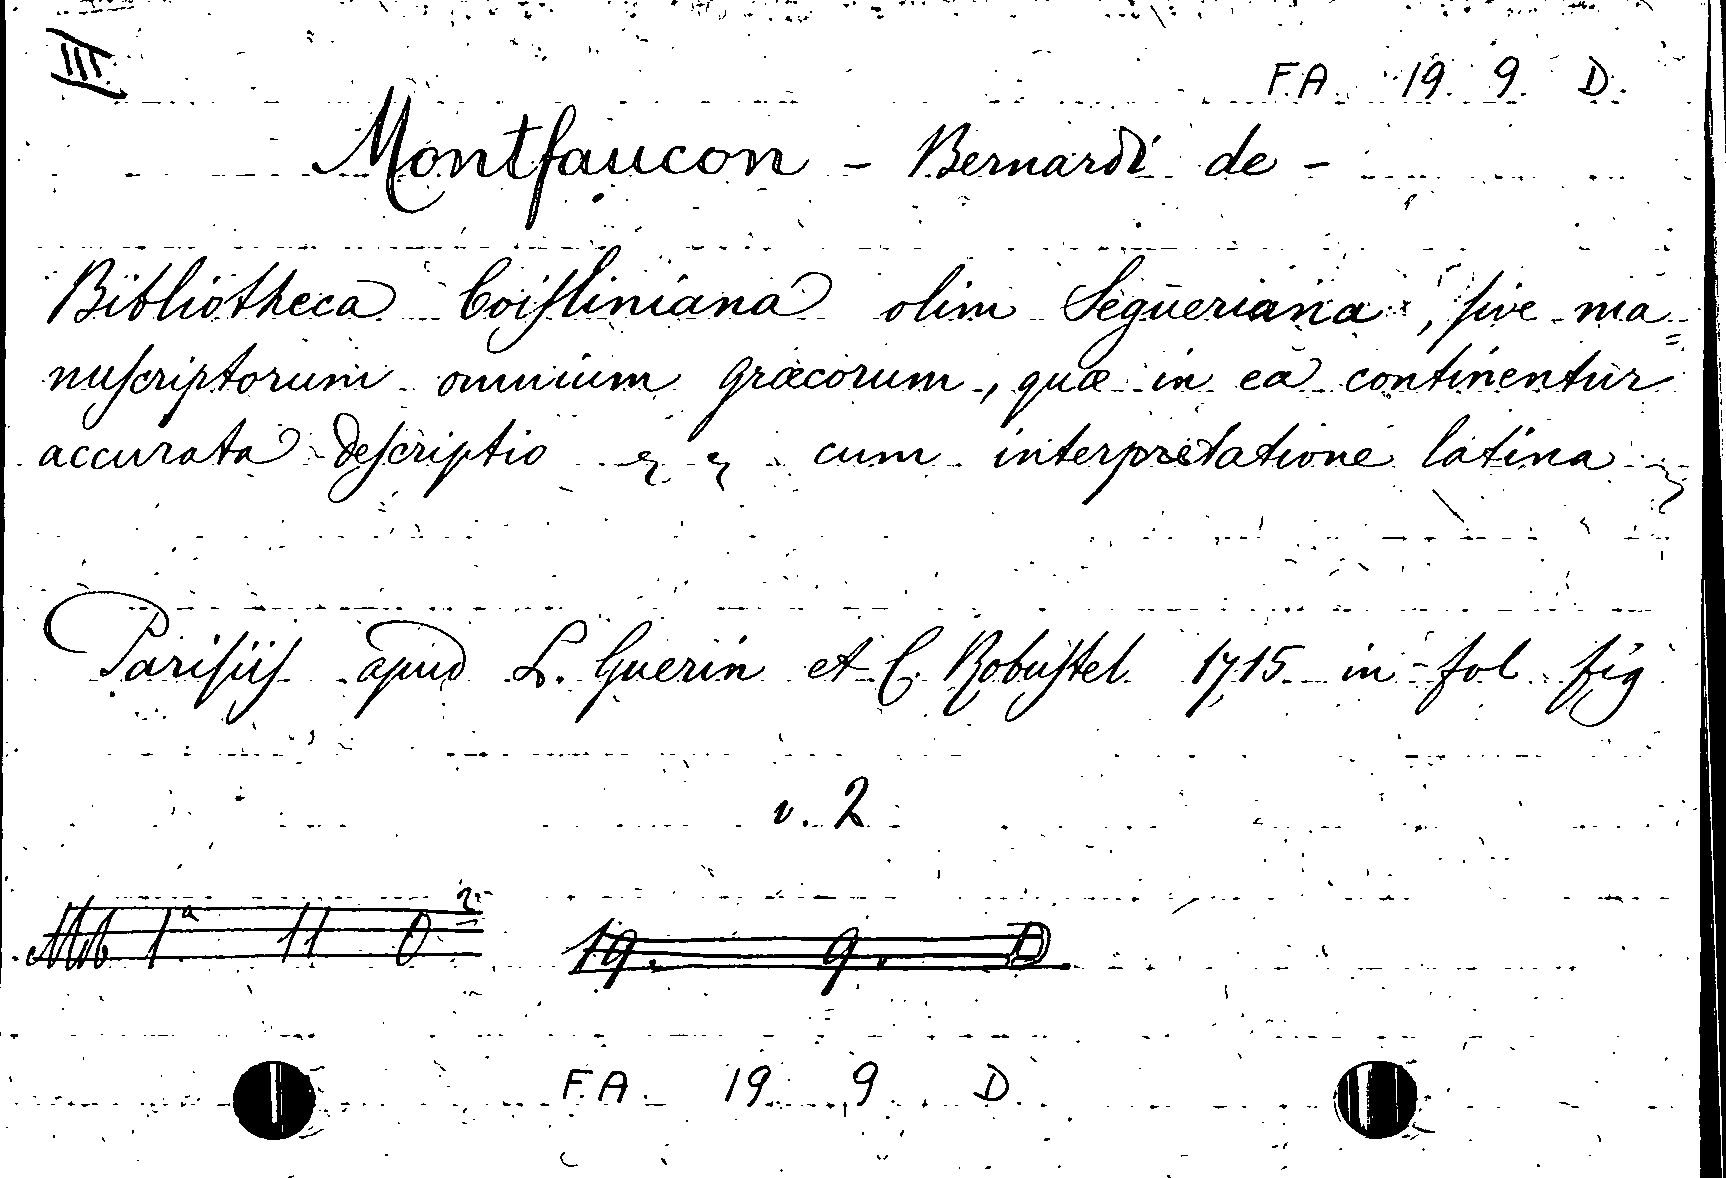 III
F.A. 19. 9. D.
Montfaucon - Bernardi de -
Bibliotheca Coisliniana olim Segueriana, sive ma=
nuscriptorum omnium græcorum, quæ in ea continentur
accurata descriptio cum interpretatione latina
Parisiis apud L. Guerin et C. Robustel 1715 in-fol fig
v. 2
Mb 1ª 11 0
19. 9. D
F.A. 19 9 D